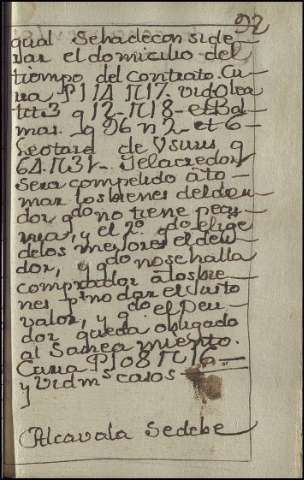 92
qual Sehadeconside-
rar el domicilio del
tiempo del contrato. Cu-
ria P114 N17. vidolea
q 12. N18 - et Bal
mas. q 96 n 2 et 6 -
Leotard de Vsuris q
64. N31 -
Sera compelido à to-
mar los bienes del deu-
dor qdo no tiene pecu-
nia, y el 2º qdo elige
delos mejores el deu-
dor, qdo nosehalla
comprador à los bie-
nes pr no dar el Justo
valor, y qdo el Deu-
dor queda obligado
al Saneamiento.
Curia P108 N16 -
y vi dms casos -
Alcavala Sedebe